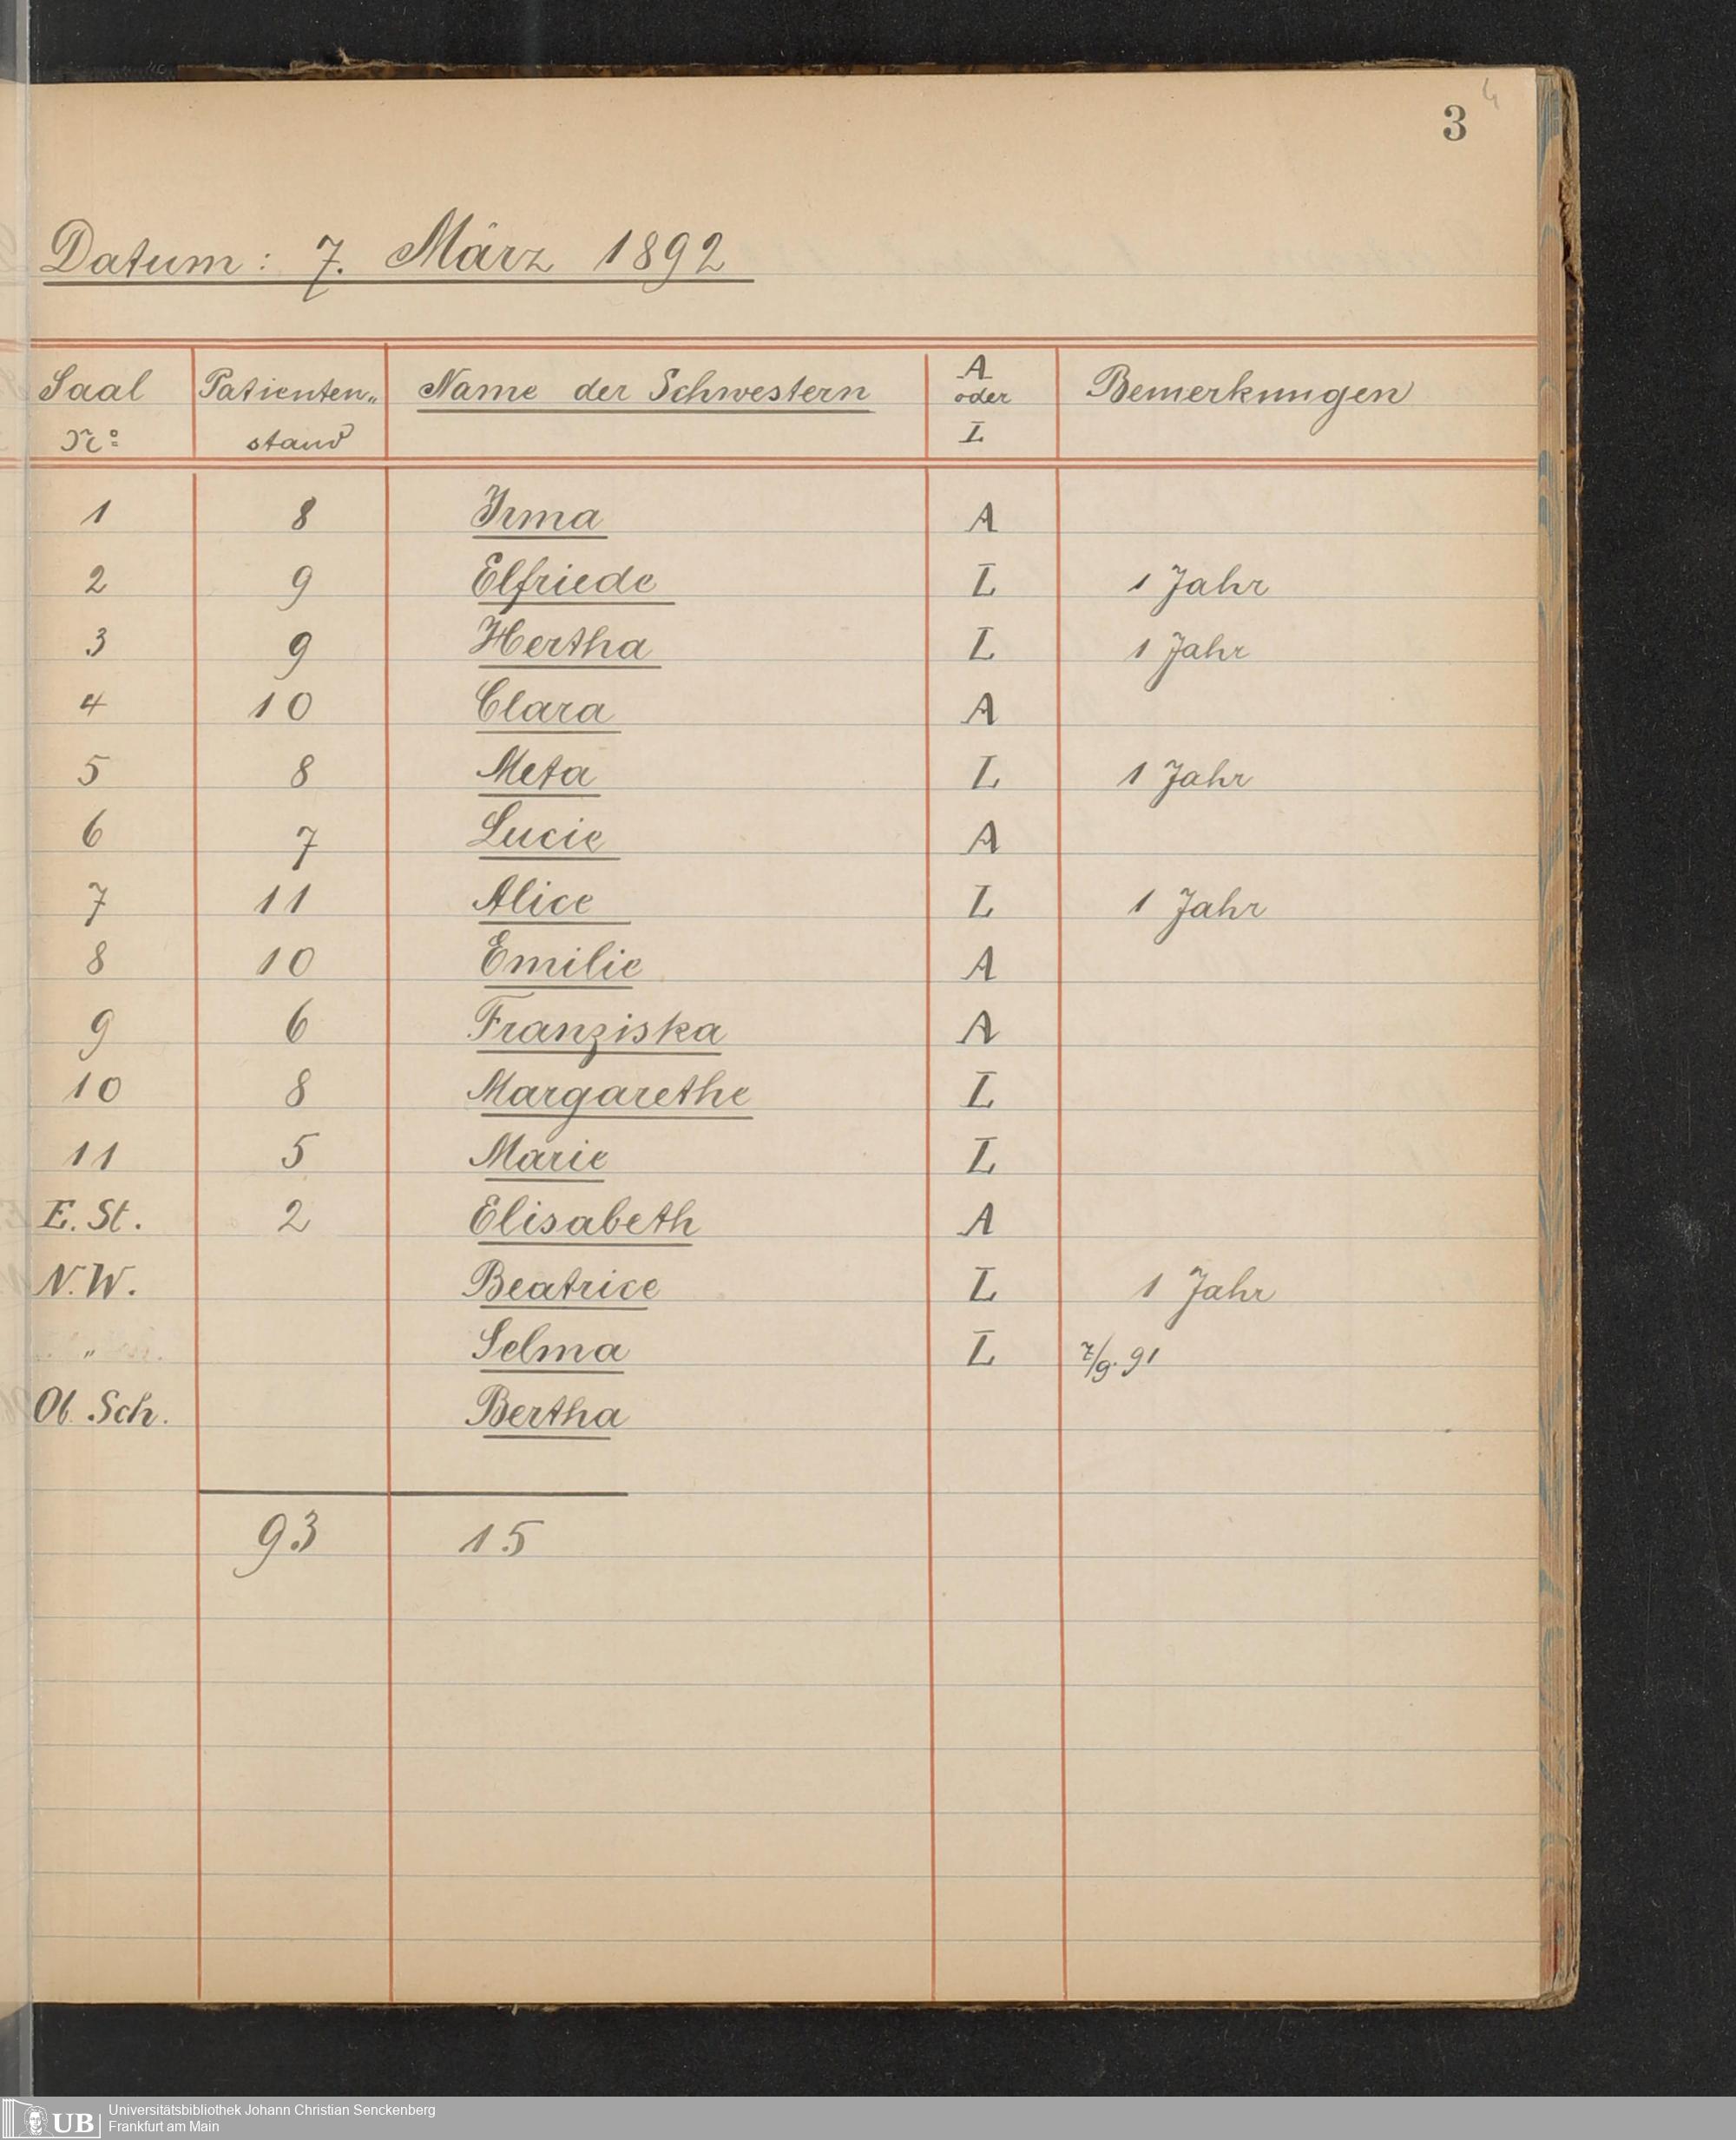 4
3
Datum: 7. März 1892
Saal Nr: Patienten„ stand Name der Schwestern A oder L Bemerkungen
1 8 Irma A
2 9 Elfriede L 1 Jahr
3 9 Hertha L 1 Jahr
4 10 Clara A
5 8 Meta L 1 Jahr
6 7 Lucie A
7 11 Alice L 1 Jahr
8 10 Emilie A
9 6 Franziska A
10 8 Margarethe L
11 5 Marie L
E. St. 2 Elisabeth A
N.W. Beatrice L 1 Jahr
„ Selma L 7/9. 91
Ob. Sch. Bertha
93 15
UB Universitätsbibliothek Johann Christian Senckenberg
Frankfurt am Main